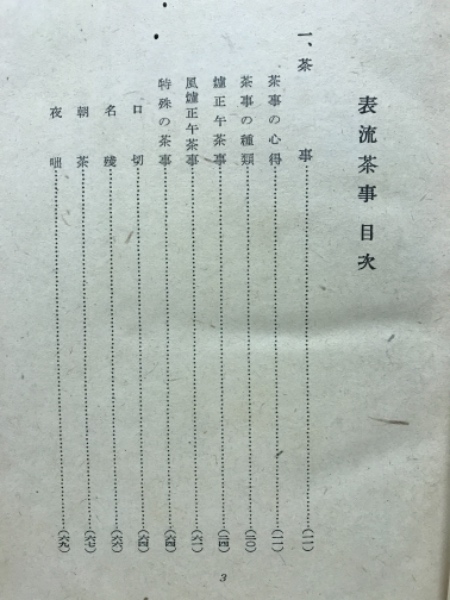 表流茶事 目次
一、茶事……(一)
茶事の心得……(一)
茶事の種類……(二〇)
爐正午茶事……(二四)
風爐正午茶事……(六一)
特殊の茶事……(六四)
口切……(六四)
名殘……(六六)
朝茶……(六七)
夜咄……(六九)
3